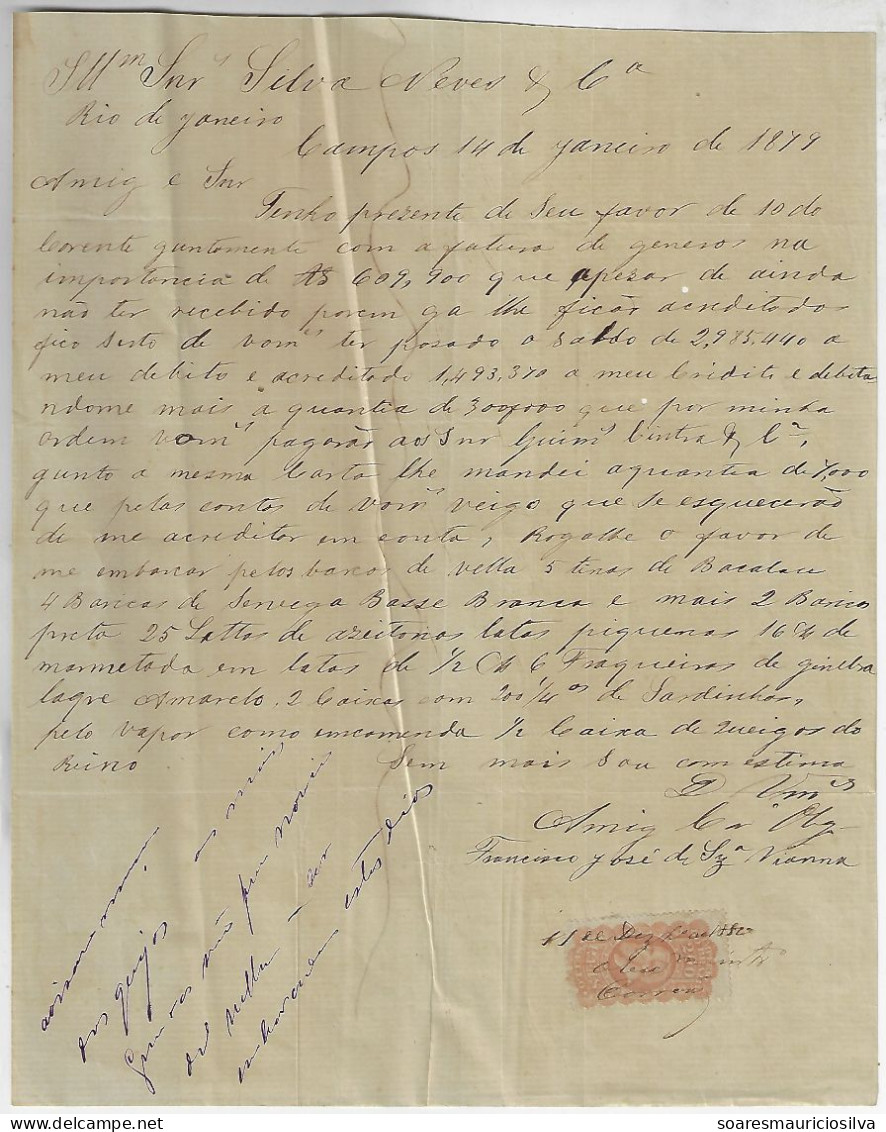 Illm Snrs Silva Neves & Ca
Rio de Janeiro
Campos 14 de Janeiro de 1879
Amig e Snr
Tenho prezente de Seu favor de 10 do
Corente guntamente com a fatura de generos na
importancia de RS 609,900 que apezar de ainda
não ter recebido porem ga lhe ficão acreditados
fico serto de voms ter pasado o saldo de 2,985.440 a
meu debito e acreditado 1,493,370 a meu Crédito e debita
ndome mais a quantia de 300#000 que por minha
ordem Voms pagarão aos Snr Guims Cintra & Ca,
gunto a mesma Carta lhe mandei a quantia de
que pelas contas de Voms veigo que se esquecerão
de me acreditar em conta, Rogalhe o favor de
me embarcar pelos barcos de vella 5 tinas de Bacalau
4 Baricas de Servega Basse Branca e mais 2 Baricas
preta 25 Lattas de azeitonas latas piquenas 16 de
marmelada em latas de 1/2 6 Fraqueiras de ginebra
laqre Amarelo, 2 Caixas com 200 1/4os de Sardinhas,
pelo vapor como emcomenda 1/2 Caixa de queigos do
Reino Sem mais Sou com estima
D Vmes
Amig Cro Obg
Francisco José de Sza Vianna
dos queijos as mais
não
de vella
embarcadas estes dias
11 de Dez de 1880